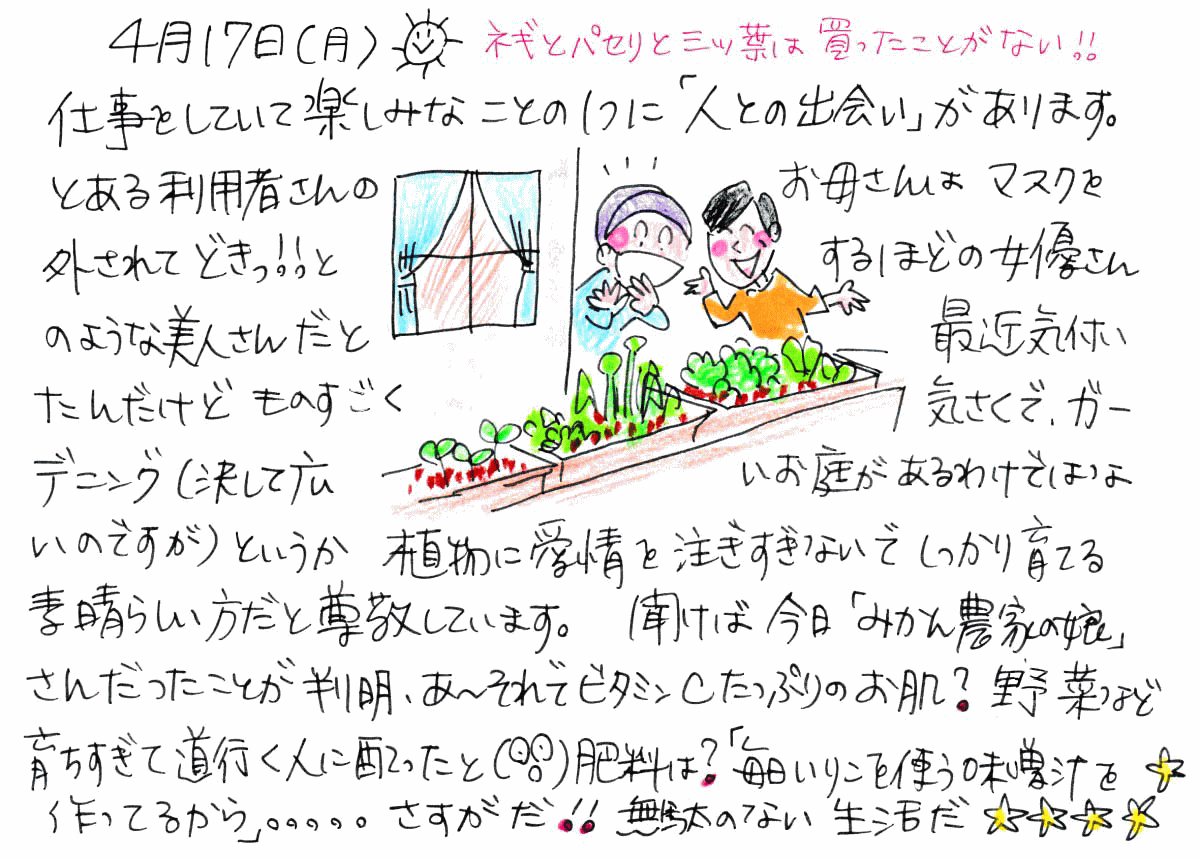 4月17日(月) ネギとパセリと三ッ葉は買ったことがない!!
仕事をしていて楽しみなことの1つに「人との出会い」があります。
とある利用者さんの お母さんは マスクを
外されて どきっ!!と するほどの女優さん
のような美人さんだと 最近気付い
たんだけど ものすごく 気さくで、ガー
デニング(決して広 いお庭があるわけではな
いのですが)というか 植物に愛情を注ぎすぎないで しっかり育てる
素晴らしい方だと尊敬しています。 聞けば 今日「みかん農家の娘」
さんだったことが判明、あ〜それでビタミンCたっぷりのお肌? 野菜など
育ちすぎて道行く人に配ったと( )肥料は?「毎日いりこを使う味噌汁を
作ってるから」。。。。。 さすがだ!! 無駄のない 生活だ